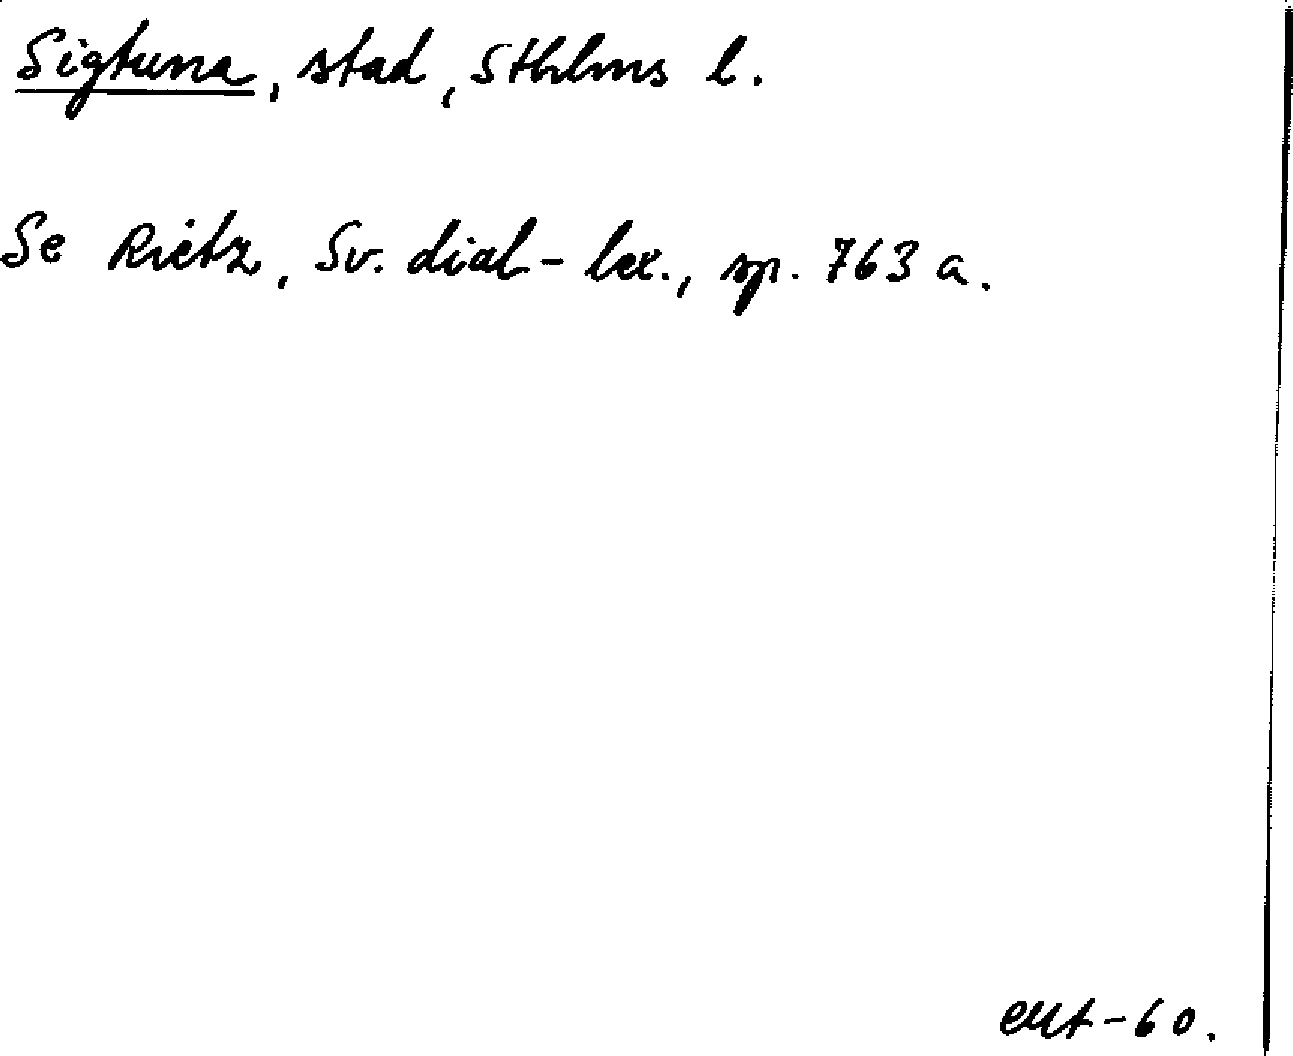 Sigtuna, stad, Sthlms l.
Se Rietz, Sv. dial-lex., sp. 763 a.
-60.